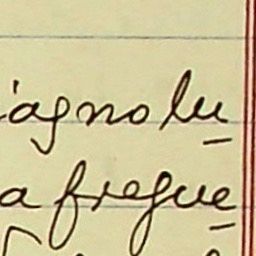 iagnolu
a fregue